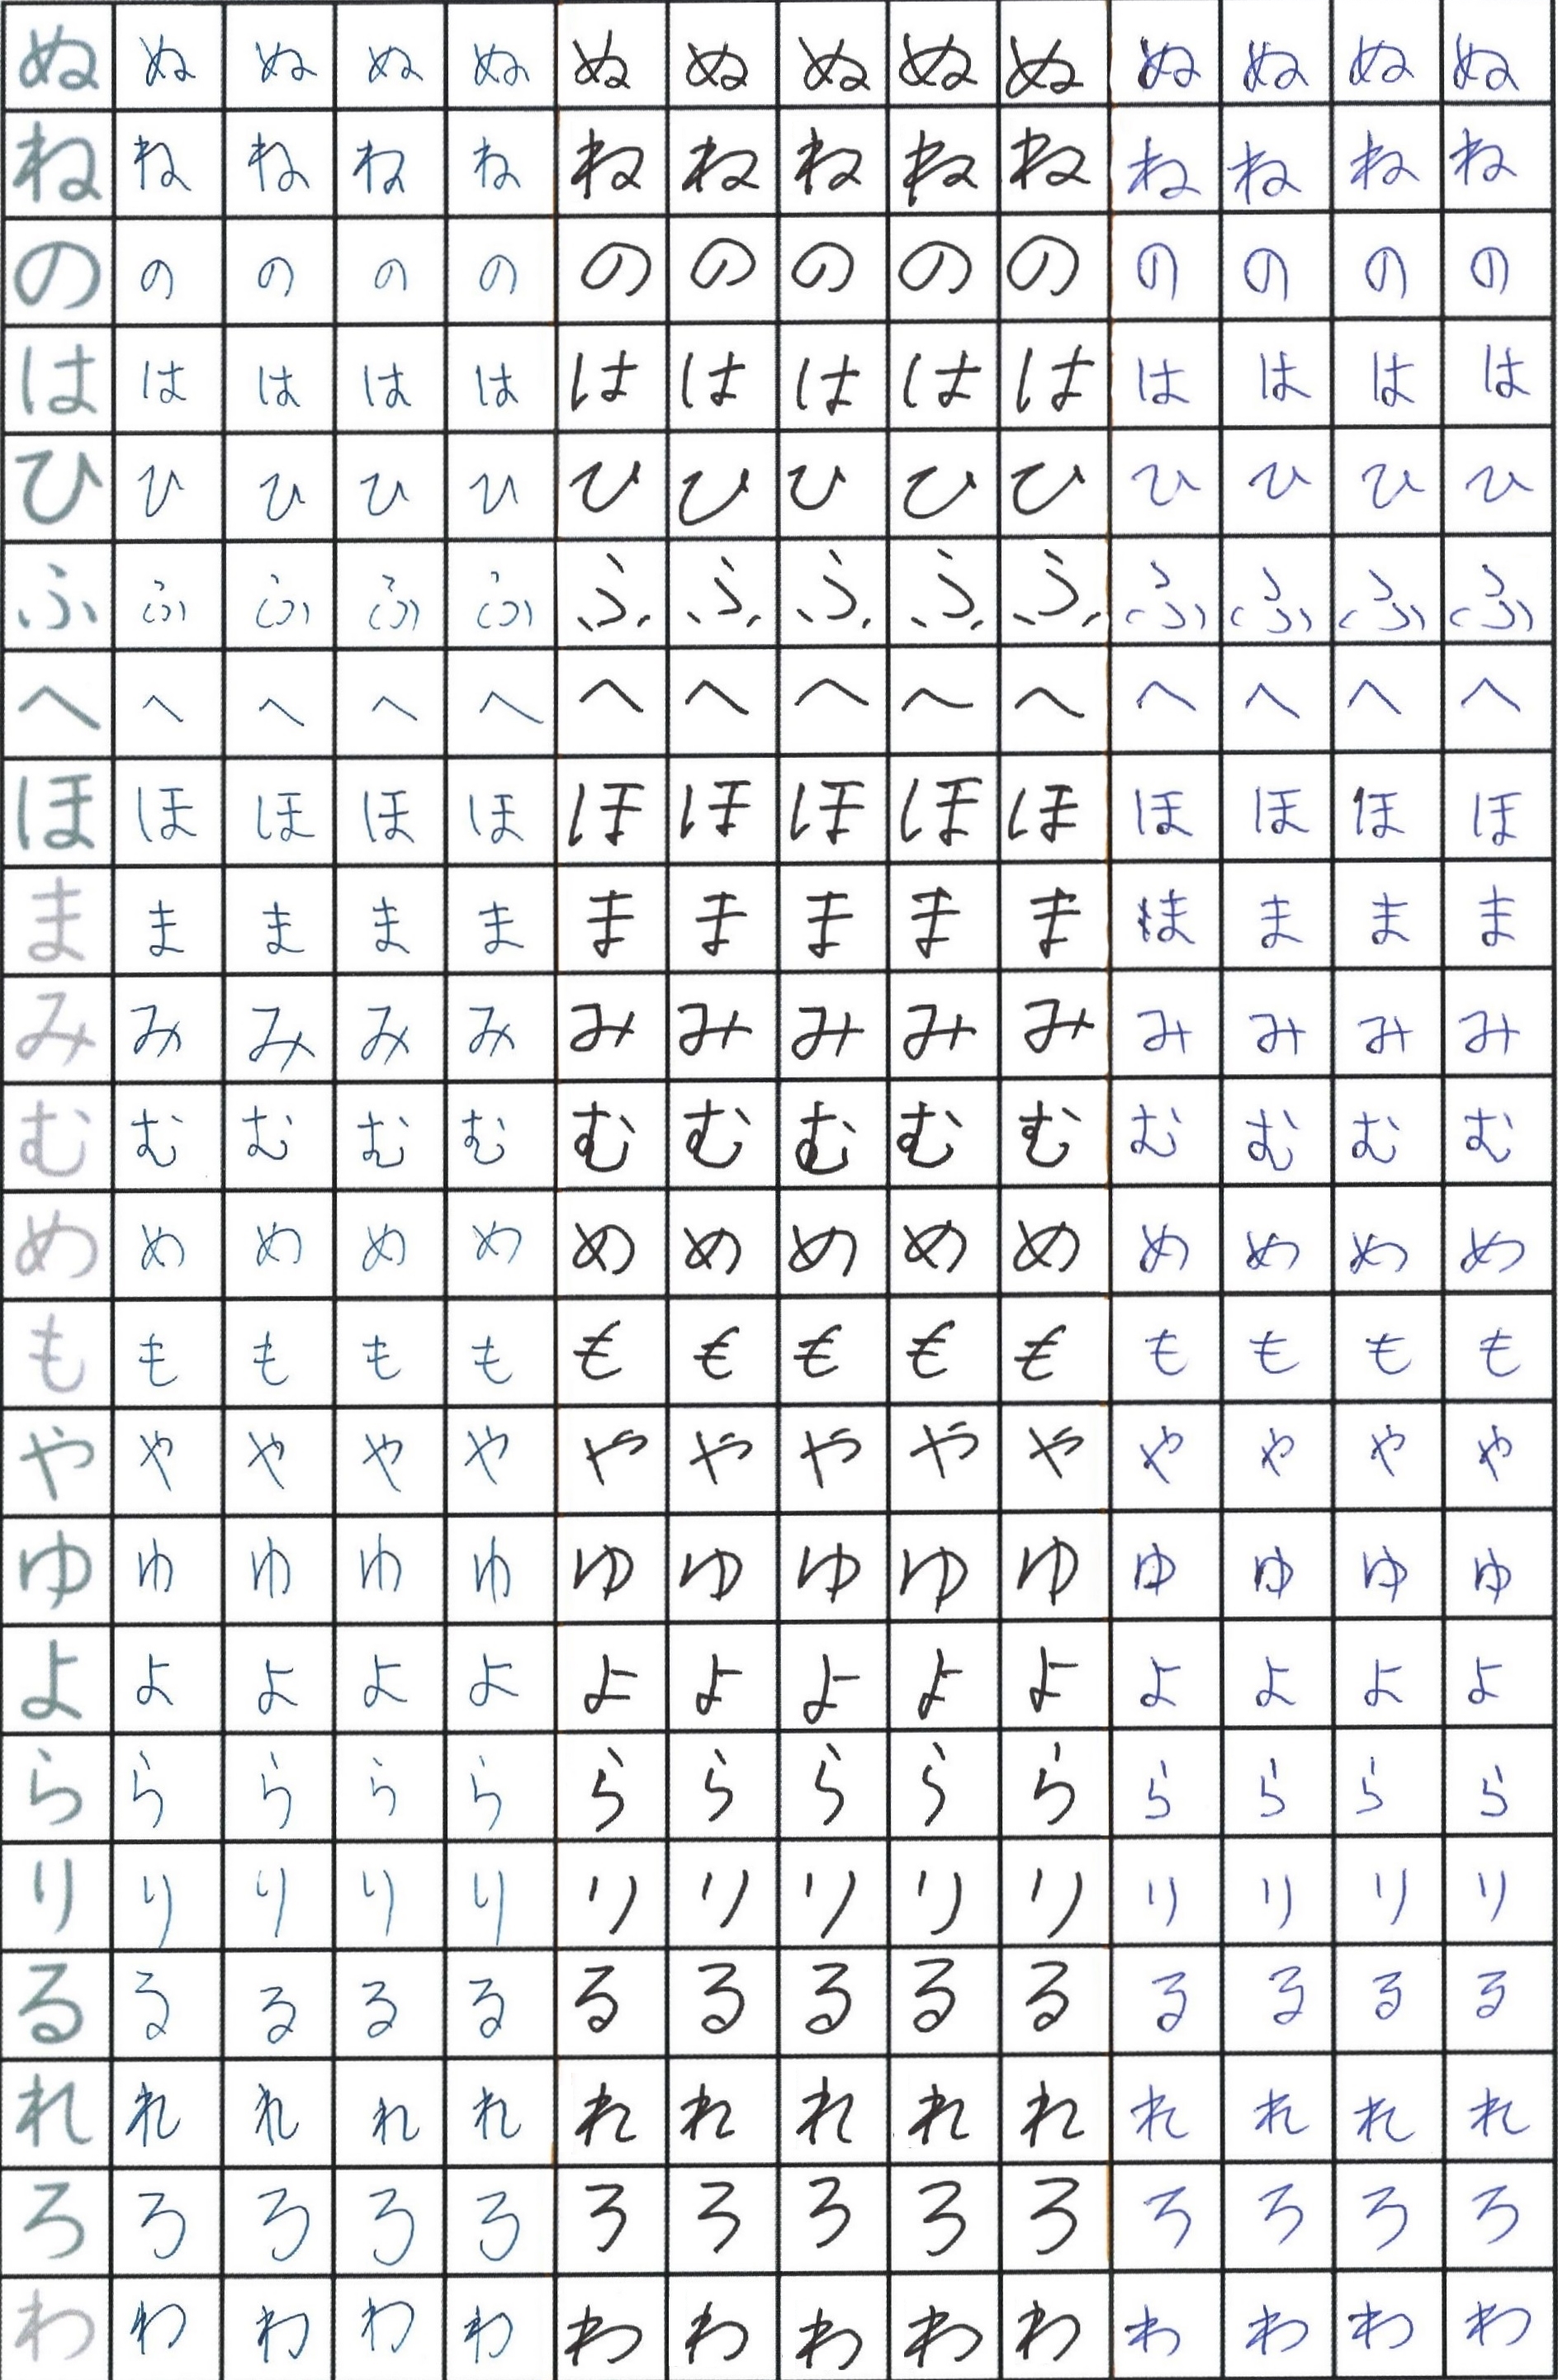 ぬ ぬ ぬ ぬ ぬ ぬ ぬ ぬ ぬ ぬ ぬ ぬ ぬ ぬ
ね ね ね ね ね ね ね ね ね ね ね ね ね ね
の の の の の の の の の の の の の の
は は は は は は は は は は は は は は
ひ ひ ひ ひ ひ ひ ひ ひ ひ ひ ひ ひ ひ ひ
ふ ふ ふ ふ ふ ふ ふ ふ ふ ふ ふ ふ ふ ふ
へ へ へ へ へ へ へ へ へ へ へ へ へ へ
ほ ほ ほ ほ ほ ほ ほ ほ ほ ほ ほ ほ ほ ほ
ま ま ま ま ま ま ま ま ま ま ほ ま ま ま
み み み み み み み み み み み み み み
む む む む む む む む む む む む む む
め め め め め め め め め め め め め め
も も も も も も も も も も も も も も
や や や や や や や や や や や や や や
ゆ ゆ ゆ ゆ ゆ ゆ ゆ ゆ ゆ ゆ ゆ ゆ ゆ ゆ
よ よ よ よ よ よ よ よ よ よ よ よ よ よ
ら ら ら ら ら ら ら ら ら ら ら ら ら ら
り り り り り り り り り り り り り り
る る る る る る る る る る る る る る
れ れ れ れ れ れ れ れ れ れ れ れ れ れ
ろ ろ ろ ろ ろ ろ ろ ろ ろ ろ ろ ろ ろ ろ
わ わ わ わ わ わ わ わ わ わ わ わ わ わ